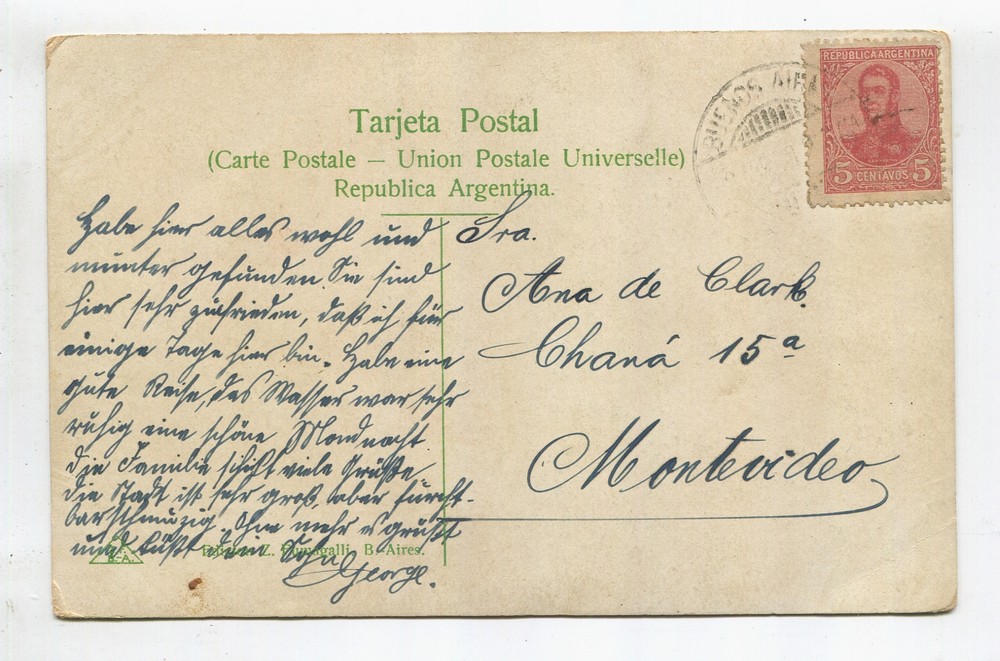 REPUBLICA ARGENTINA
5 CENTAVOS 5
BUENOS AIRES
Tarjeta Postal
(Carte Postale — Union Postale Universelle)
Republica Argentina.
Habe hier alles wohl und
munter gefunden Sie sind
hier sehr zufrieden, daß ich für
einige Tage hier bin. Habe eine
gute Reise, das Wasser war sehr
ruhig eine schöne Mondnacht
die Familie schickt viele Grüße
die Stadt ist sehr groß, aber furcht-
bar schmuzig. Ohne mehr es grüßt
und küßt dein Sohn
George.
Sra.
Ana de Clark.
Chaná 15ª
Montevideo
Z. Fumagalli, B-Aires.
B.-A.